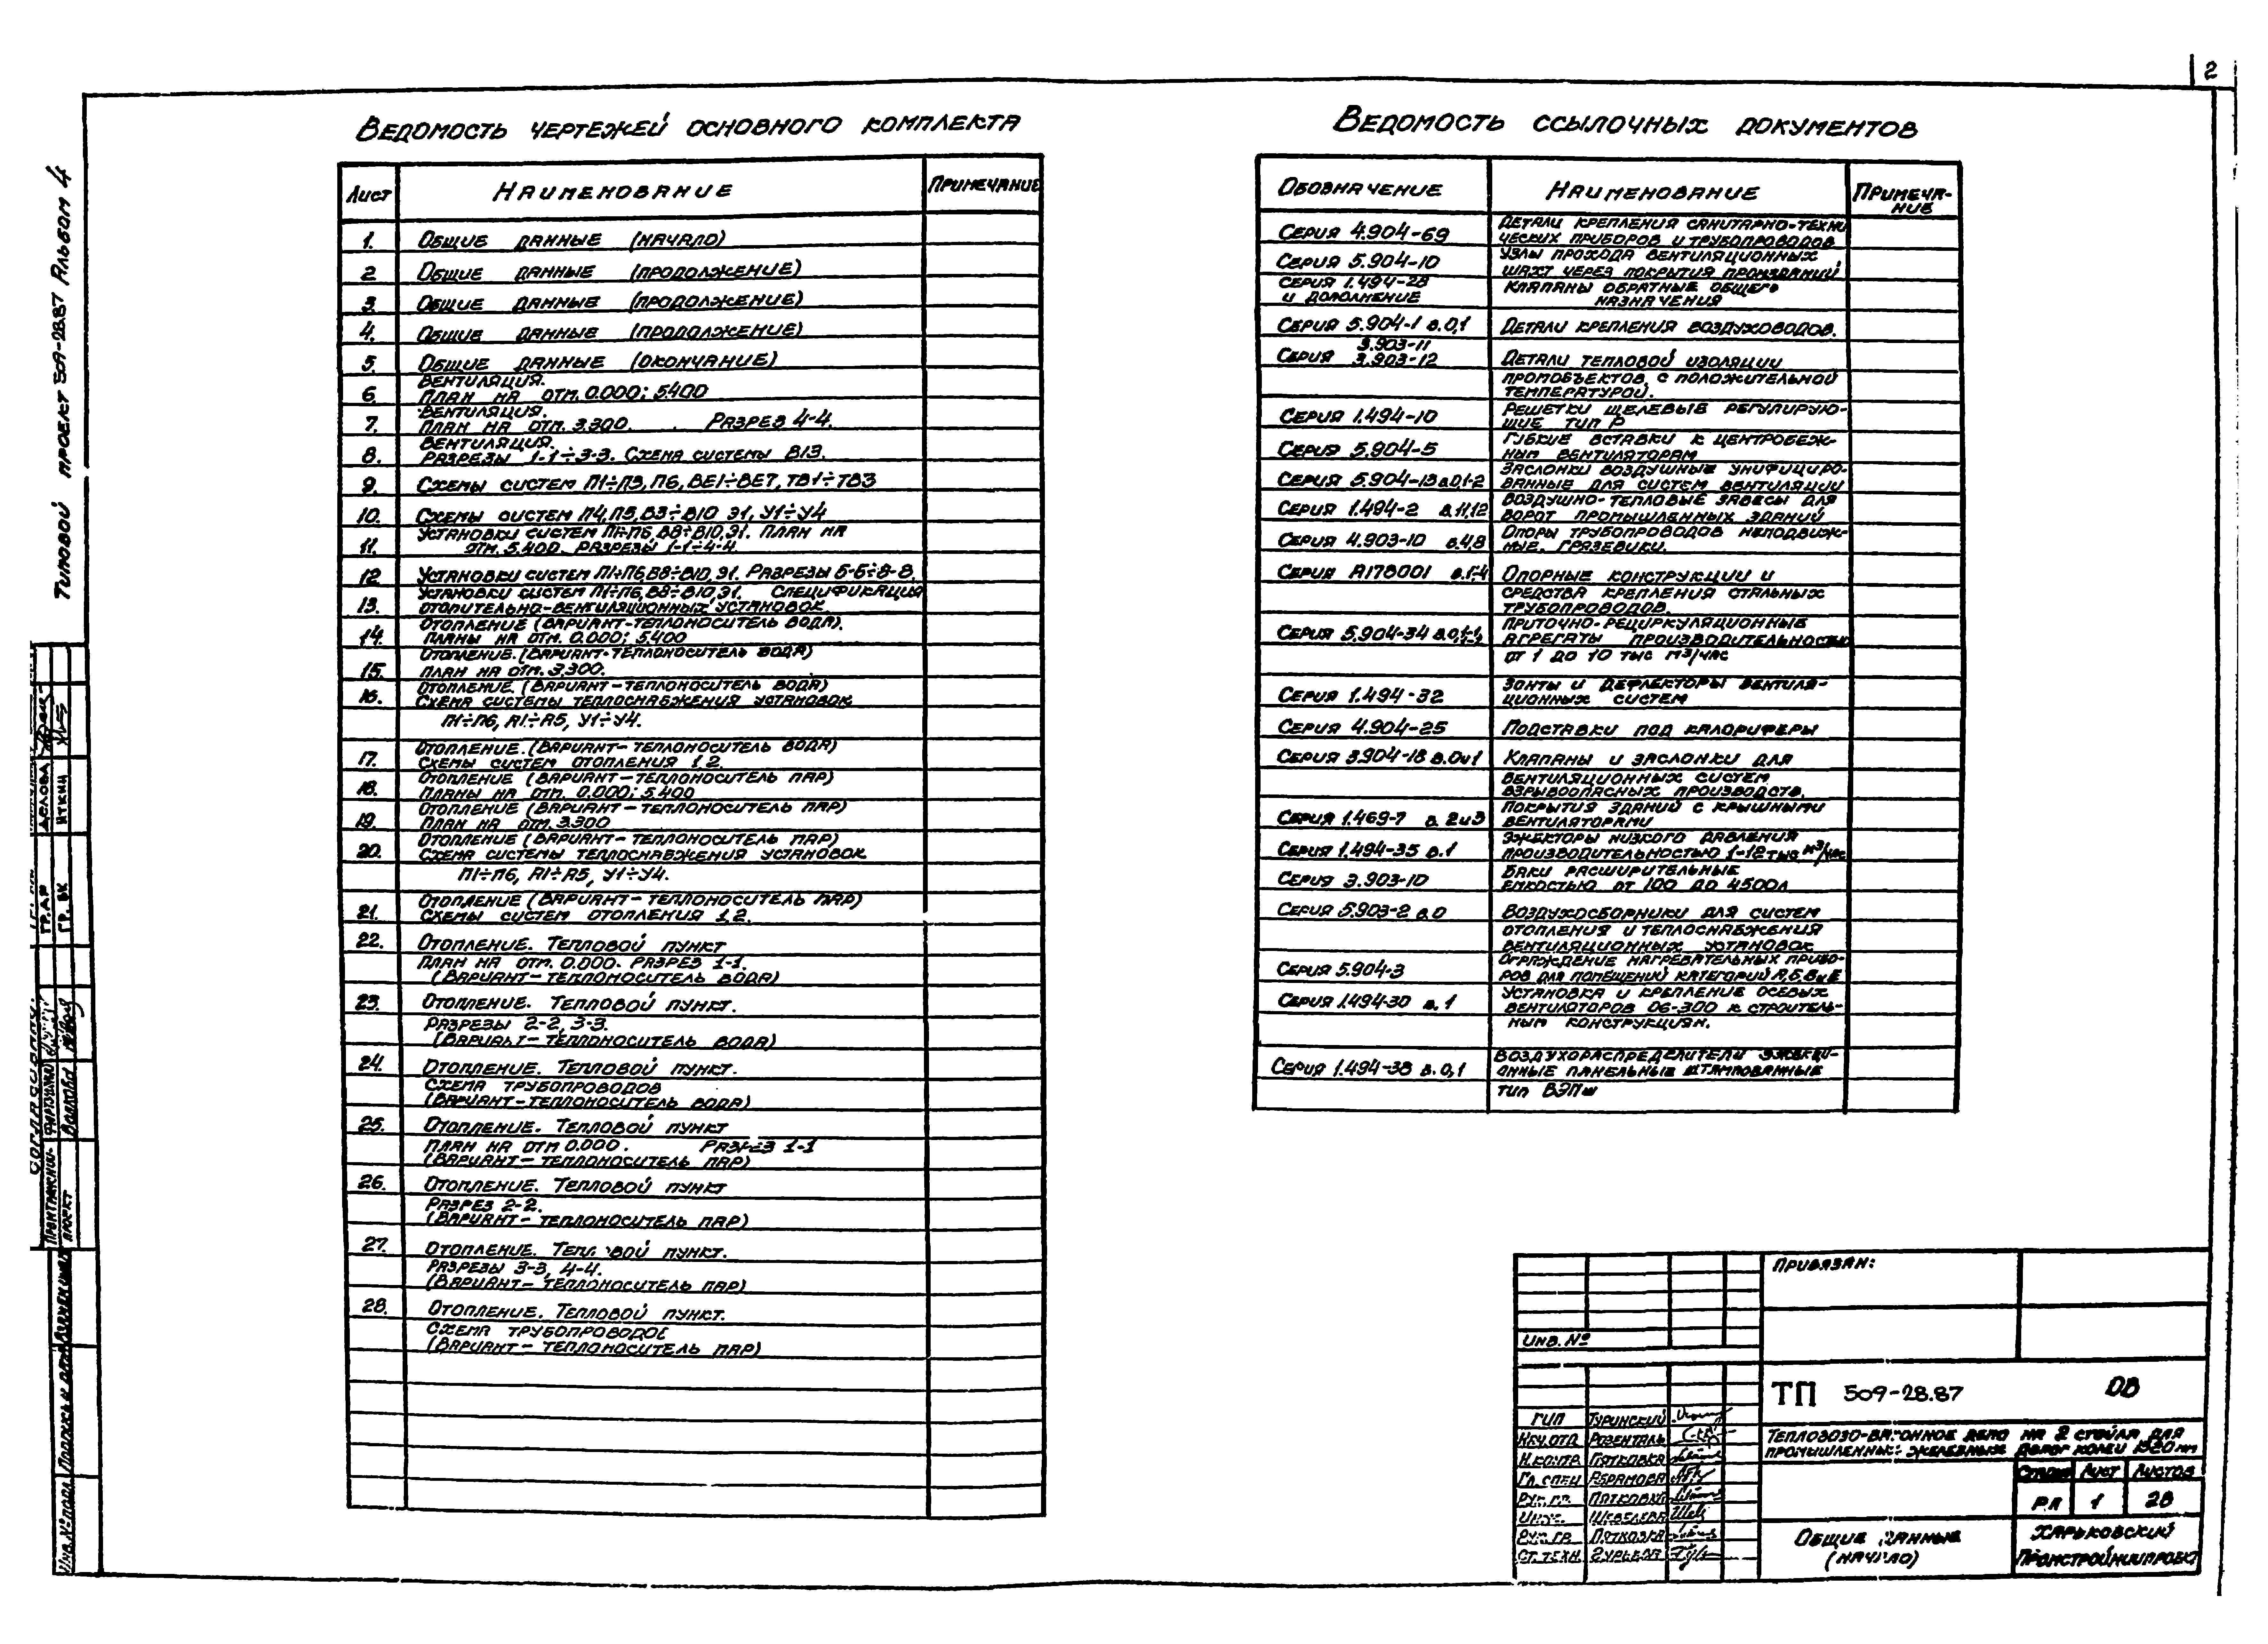 2
Типовой проект 509-28.87 Альбом 4
Ведомость чертежей основного комплекта
Лист Наименование Примечание
1. Общие данные (начало)
2 Общие данные (продолжение)
3. Общие данные (продолжение)
4. Общие данные (продолжение)
5. Общие данные (окончание)
Вентиляция.
6. План на отм. 0.000; 5.400
Вентиляция.
7. План на отм. 3.300. Разрез 4-4.
Вентиляция.
8. Разрезы 1-1÷3-3. Схема системы В13.
9. Схемы систем П1÷П3, П6, ВЕ1÷ВЕ7, ТВ1÷ТВ3
10. Схемы систем П4, П5, В3÷В10 Э1, У1÷У4
Установки систем П1÷П6, В8÷В10, Э1. План на
11. отм. 5.400. Разрезы 1-1÷4-4
12 Установки систем П1÷П6, В8÷В10, Э1. Разрезы 5-5÷8-8.
Установки систем П1÷П6, В8÷В10, Э1. Спецификация
13. отопительно-вентиляционных установок
Отопление (вариант-теплоноситель вода).
14. Планы на отм. 0.000; 5.400
Отопление. (Вариант-теплоноситель вода)
15. План на отм. 3.300.
Отопление. (Вариант-теплоноситель вода)
16. Схема системы теплоснабжения установок
П1÷П6, А1÷А5, У1÷У4.
Отопление. (Вариант-теплоноситель вода)
17. Схемы систем отопления 1,2.
Отопление (вариант-теплоноситель пар)
18. Планы на отм. 0.000; 5.400
Отопление (вариант-теплоноситель пар)
19. План на отм. 3.300
Отопление (вариант-теплоноситель пар)
20. Схема системы теплоснабжения установок
П1÷П6, А1÷А5, У1÷У4.
Отопление (вариант-теплоноситель пар)
21. Схемы систем отопления 1,2.
22. Отопление. Тепловой пункт
План на отм. 0.000. Разрез 1-1.
(Вариант-теплоноситель вода)
23. Отопление. Тепловой пункт.
Разрезы 2-2, 3-3.
(Вариант-теплоноситель вода)
24. Отопление. Тепловой пункт.
Схема трубопроводов
(Вариант-теплоноситель вода)
25. Отопление. Тепловой пункт
План на отм 0.000. Разрез 1-1
(Вариант-теплоноситель пар)
26. Отопление. Тепловой пункт
Разрез 2-2.
(Вариант-теплоноситель пар)
27. Отопление. Тепловой пункт.
Разрезы 3-3, 4-4.
(Вариант-теплоноситель пар)
28. Отопление. Тепловой пункт.
Схема трубопроводов
(Вариант-теплоноситель пар)
Ведомость ссылочных документов
Обозначение Наименование Примеча-
ние
Серия 4.904-69 Детали крепления санитарно-техни
ческих приборов и трубопроводов
Серия 5.904-10 Узлы прохода вентиляционных
шахт через покрытия промзданий
Серия 1.494-28 Клапаны обратные общего
и дополнение назначения
Серия 5.904-1 в.0,1 Детали крепления воздуховодов.
3.903-11
Серия 3.903-12 Детали тепловой изоляции
промобъектов с положительной
температурой.
Серия 1.494-10 Решетки щелевые регулирую-
щие тип Р
Серия 5.904-5 Гибкие вставки к центробеж-
ным вентиляторам
Серия 5.904-13 в.0,1-2 Заслонки воздушные унифициро-
ванные для систем вентиляции
Серия 1.494-2 в.11,12 Воздушно-тепловые завесы для
ворот промышленных зданий
Серия 4.903-10 в.4,8 Опоры трубопроводов неподвиж-
ные. Грязевики.
Серия А17В001 в.1-4 Опорные конструкции и
средства крепления стальных
трубопроводов.
Серия 5.904-34 Приточно-рециркуляционные
агрегаты производительностью
от 1 до 10 тыс м³/час
Серия 1.494-32 Зонты и дефлекторы вентиля-
ционных систем
Серия 4.904-25 Подставки под калориферы
Серия 3.904-18 в.0и1 Клапаны и заслонки для
вентиляционных систем
взрывоопасных производств.
Серия 1.469-7 в. 2и3 Покрытия зданий с крышными
вентиляторами
Серия 1.494-35 в.1 Эжекторы низкого давления
производительностью 1-12 тыс м³/час
Серия 3.903-10 Баки расширительные
емкостью от 100 до 4500л
Серия 5.903-2 в.0 Воздухосборники для систем
отопления и теплоснабжения
вентиляционных установок
Серия 5.904-3 Ограждение нагревательных прибо-
ров для помещений категорий А,Б,В и Е
Серия 1.494-30 в.1 Установка и крепление осевых
вентиляторов 06-300 к строитель-
ным конструкциям.
Серия 1.494-38 в.0,1 Воздухораспределители эжекци-
онные панельные штампованные
тип ВЭПш
Привязан:
Инв. №
ТП 509-28.87 ОВ
Тепловозо-вагонное депо на 2 стойла для
промышленных железных дорог колеи 1520 мм
Стадия Лист Листов
РП 1 28
Общие данные
(начало)
Харьковский
Промстройниипроект
ГИП Туринский
Нач.отд Розенталь
Н.контр Пятковка
Гл.спец Абрамова
Рук.гр. Пятковка
Инж. Шевелева
Рук.гр Пятковка
Ст.техн Гурьева
Согласовано:
Гр. АР
Гр. ВК Иткин
Инв.№подл. Подпись и дата